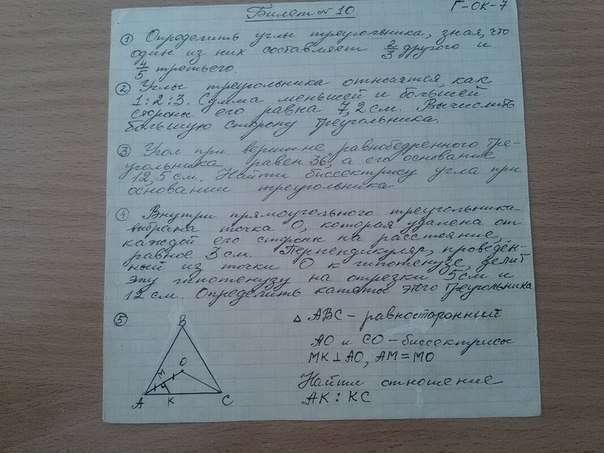 Билет № 10
Г-ОК-7
① Определить углы треугольника, зная, что
один из них составляет 2/3 другого и
4/5 третьего.
② Углы треугольника относятся, как
1:2:3. Сумма меньшей и большей
стороны его равна 7,2 см. Вычислить
большую сторону треугольника.
③ Угол при вершине равнобедренного тре-
угольника равен 36, а его основание
12,5 см. Найти биссектрису угла при
основании треугольника
④ Внутри прямоугольного треугольника
выбрана точка О, которая удалена от
каждой его стороны на расстояние,
равное 3 см. Перпендикуляр, проведен-
ный из точки О к гипотенузе, делит
эту гипотенузу на отрезки 5 см и
12 см. Определить катеты этого треугольника
⑤
B
M
O
A
K
C
Δ ABC - равносторонний
AO и CO - биссектрисы
MK ⊥ AO, AM = MO
Найти отношение
AK : KC